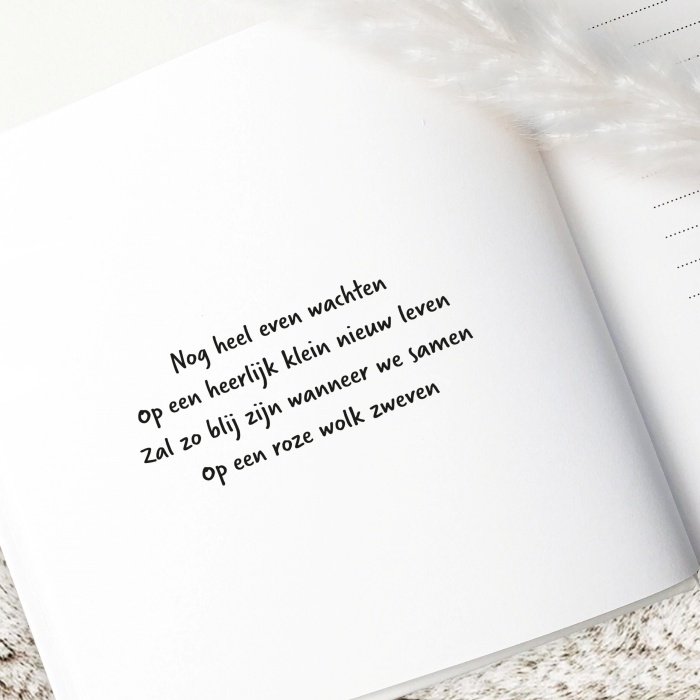 Nog heel even wachten
Op een heerlijk klein nieuw leven
Zal zo blij zijn wanneer we samen
Op een roze wolk zweven